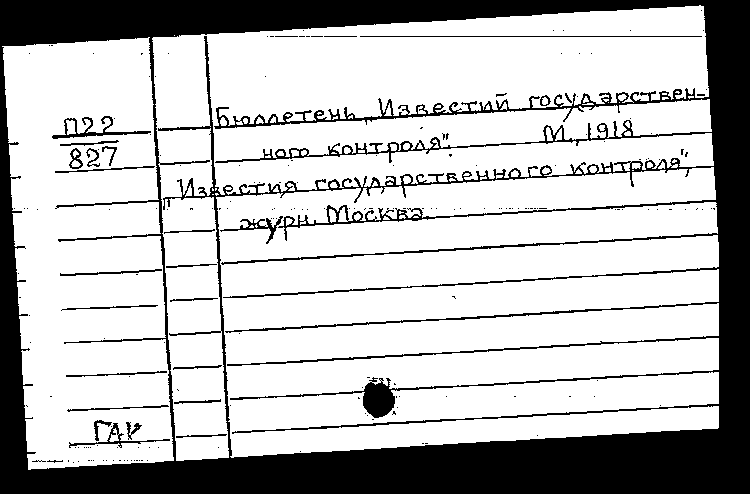 П22
827
Бюллетень „Известий государствен-
ного контроля". М., 1918
„Известия государственного контроля",
журн. Москва.
ГАК